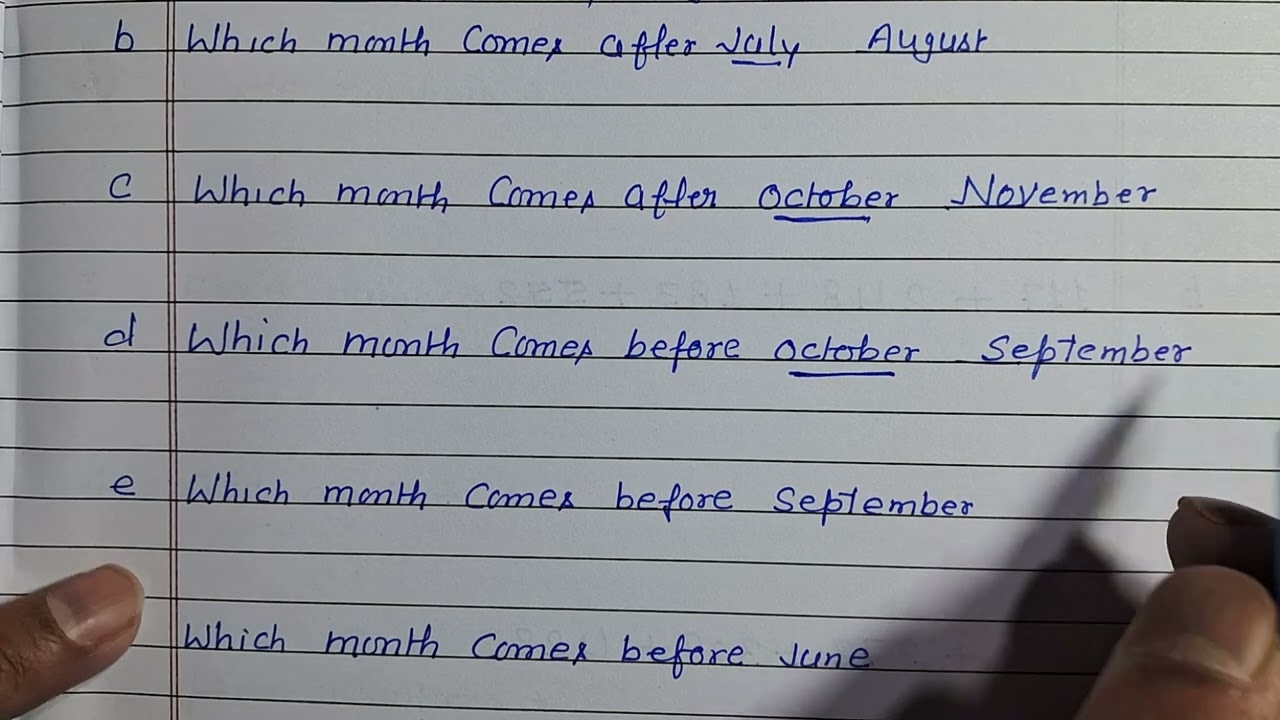 b Which month Comes after July August
c Which month Comes after October November
d Which month Comes before October September
e Which month Comes before September
Which month Comes before June